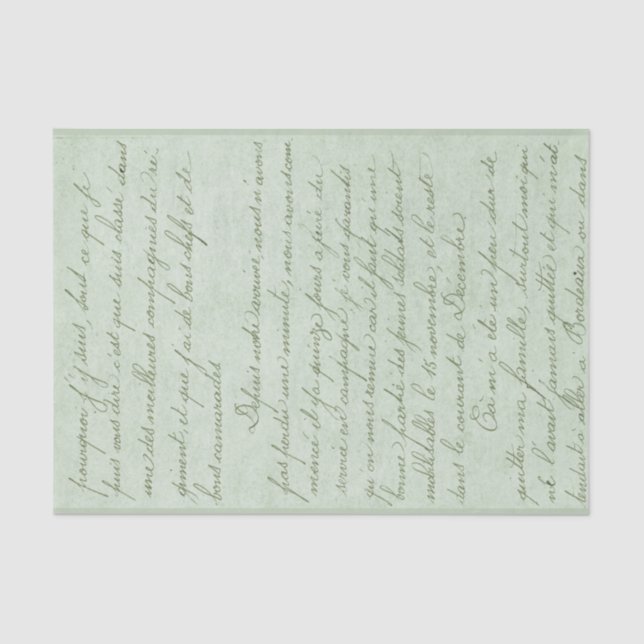 pourquoi j'y suis, tout ce que je
puis vous dire c'est que suis classé dans
une des meilleures compagnies du ré-
giment, et que j'ai de bons chefs et de
bons camarades
Depuis notre arrivée, nous n'avons
pas perdu une minute, nous avons com
mencé il y a quinze jours à faire du
service en campagne, je vous garantis
qu'on nous remue car il faut qu'une
bonne partie des jeunes soldats soient
mobilisables le 15 novembre, et le reste
dans le courant de Decembre.
Çà m'a été un peu dur de
quitter ma famille, surtout moi qui
ne l'avait jamais quittée et qui m'at
tendait à aller à Bordeaux ou dans